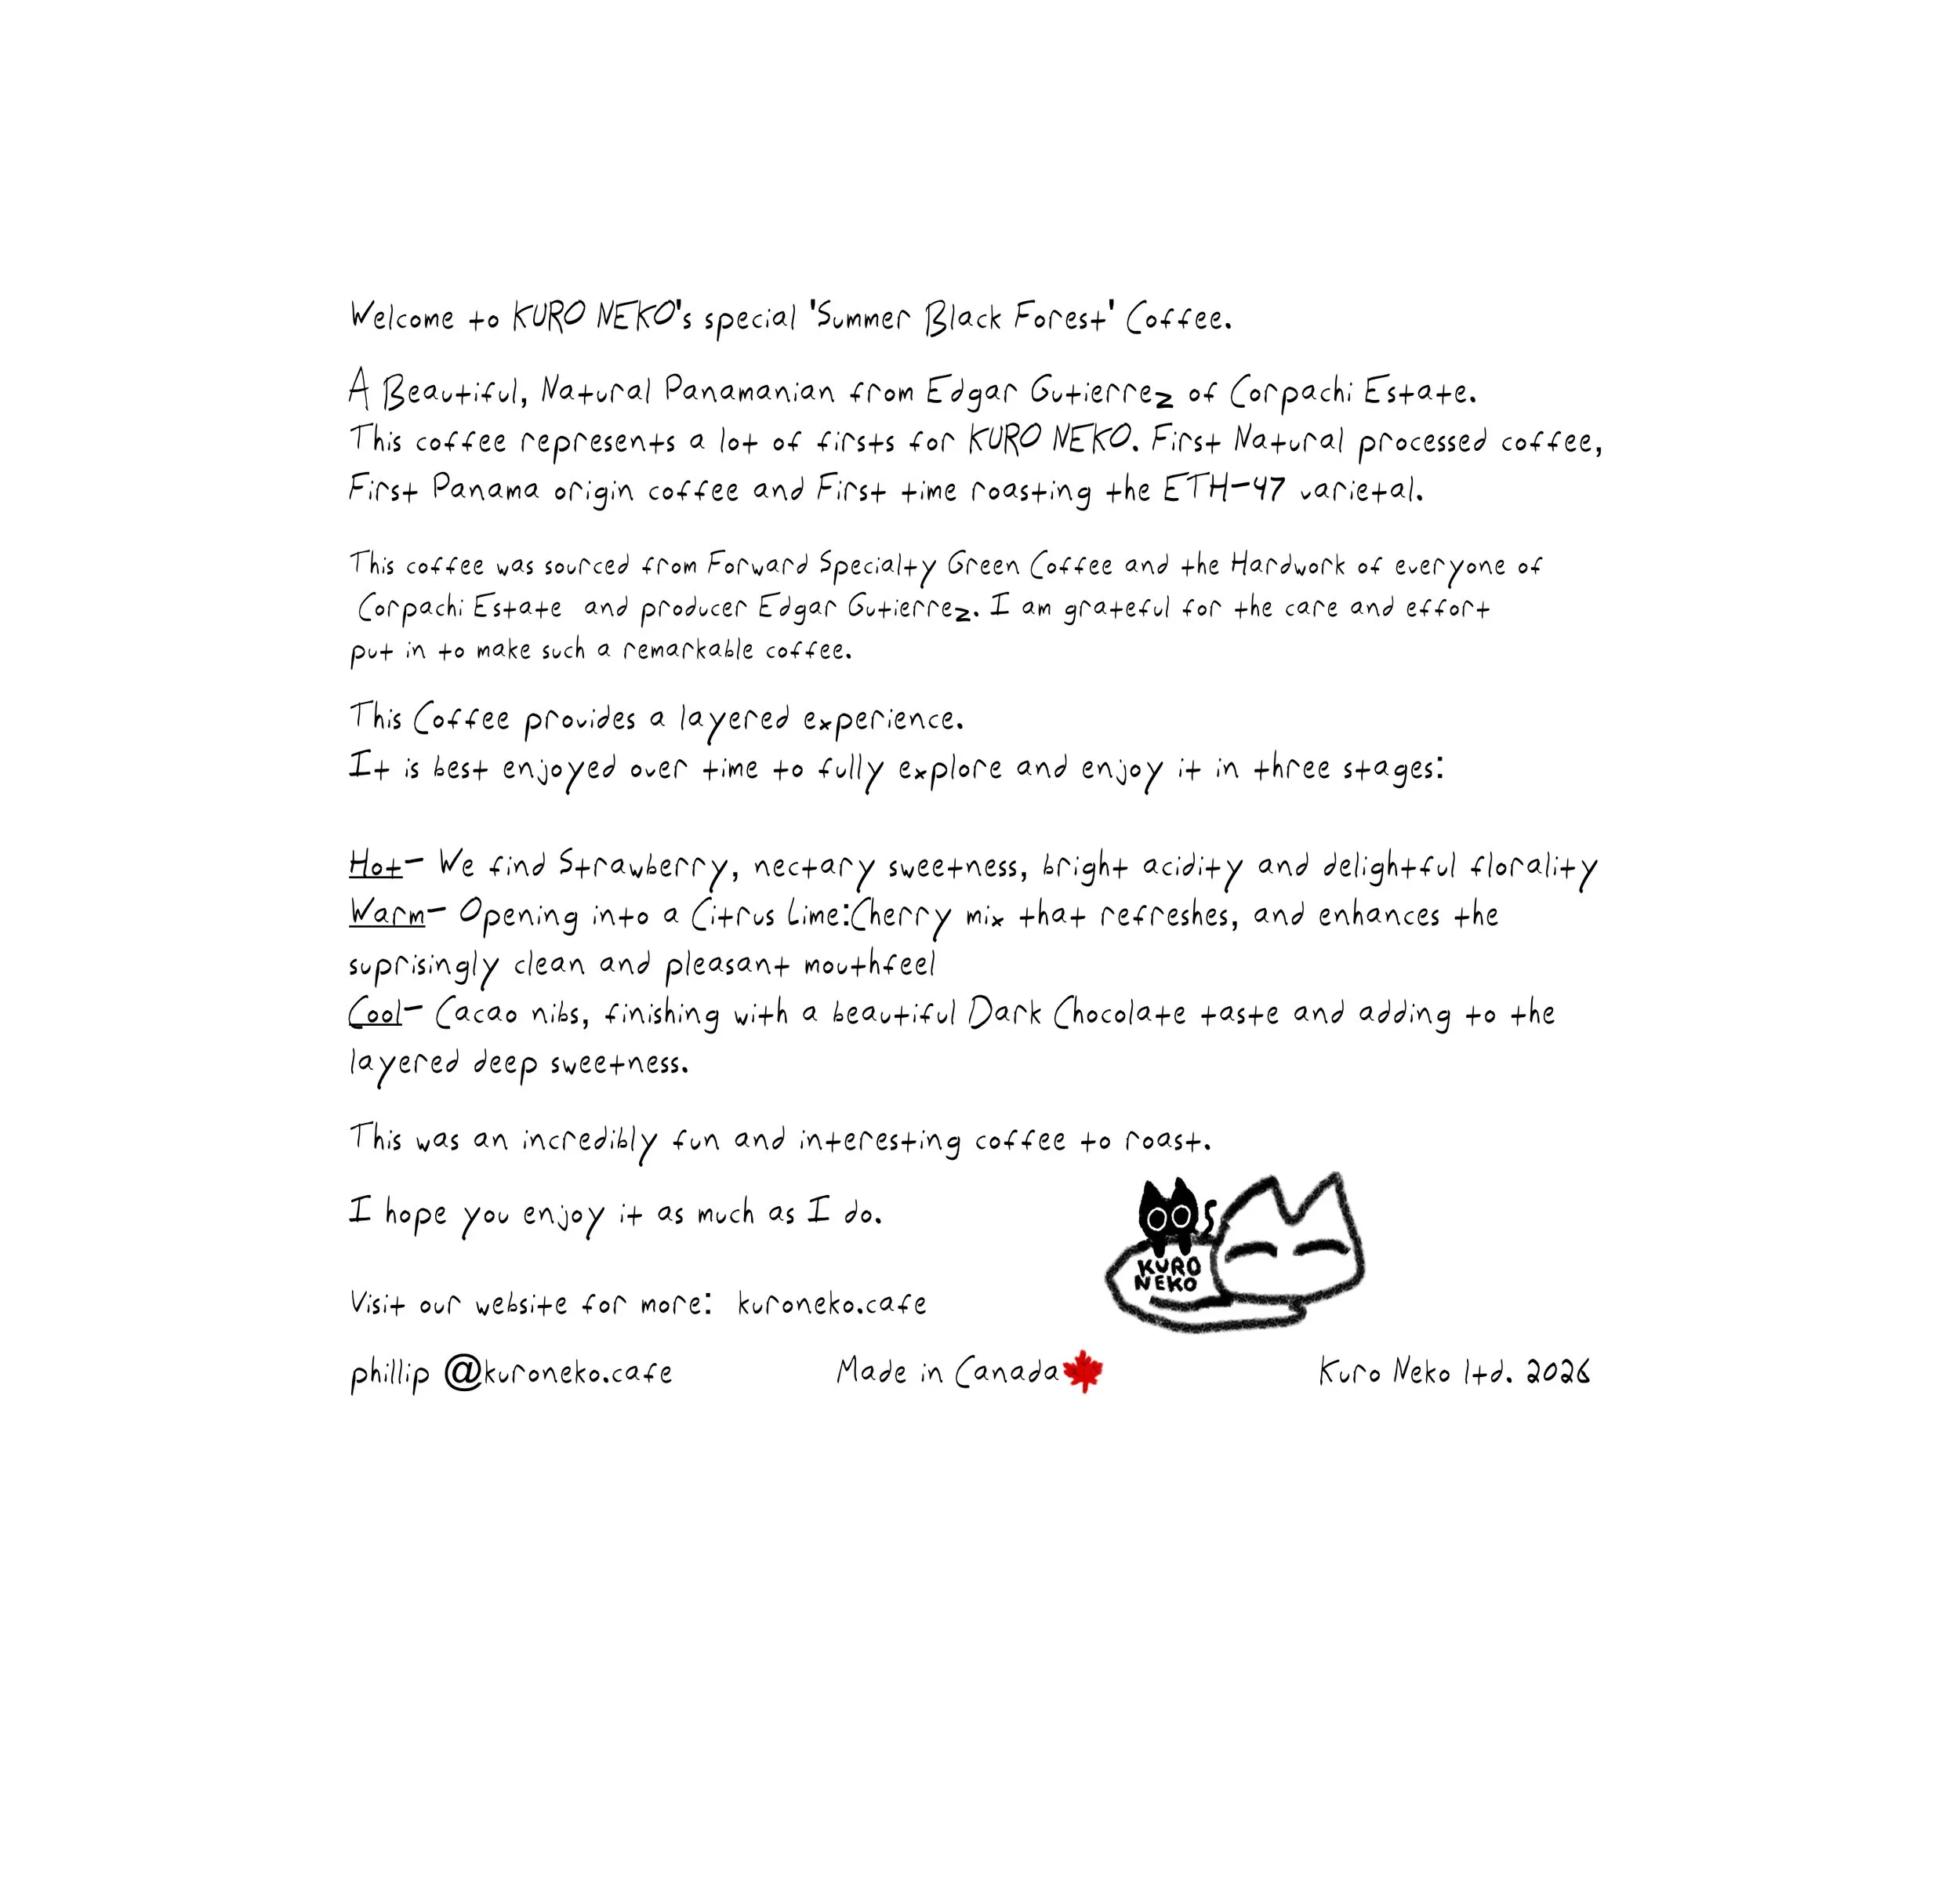 Welcome to KURO NEKO's special 'Summer Black Forest' Coffee.
A Beautiful, Natural Panamanian from Edgar Gutierrez of Corpachi Estate.
This coffee represents a lot of firsts for KURO NEKO. First Natural processed coffee,
First Panama origin coffee and First time roasting the ETH-47 varietal.
This coffee was sourced from Forward Specialty Green Coffee and the Hardwork of everyone of
Corpachi Estate and producer Edgar Gutierrez. I am grateful for the care and effort
put in to make such a remarkable coffee.
This Coffee provides a layered experience.
It is best enjoyed over time to fully explore and enjoy it in three stages:
Hot- We find Strawberry, nectary sweetness, bright acidity and delightful florality
Warm- Opening into a Citrus Lime:Cherry mix that refreshes, and enhances the
suprisingly clean and pleasant mouthfeel
Cool- Cacao nibs, finishing with a beautiful Dark Chocolate taste and adding to the
layered deep sweetness.
This was an incredibly fun and interesting coffee to roast.
I hope you enjoy it as much as I do.
KURO
NEKO
Visit our website for more: kuroneko.cafe
phillip @kuroneko.cafe
Made in Canada
Kuro Neko ltd. 2026